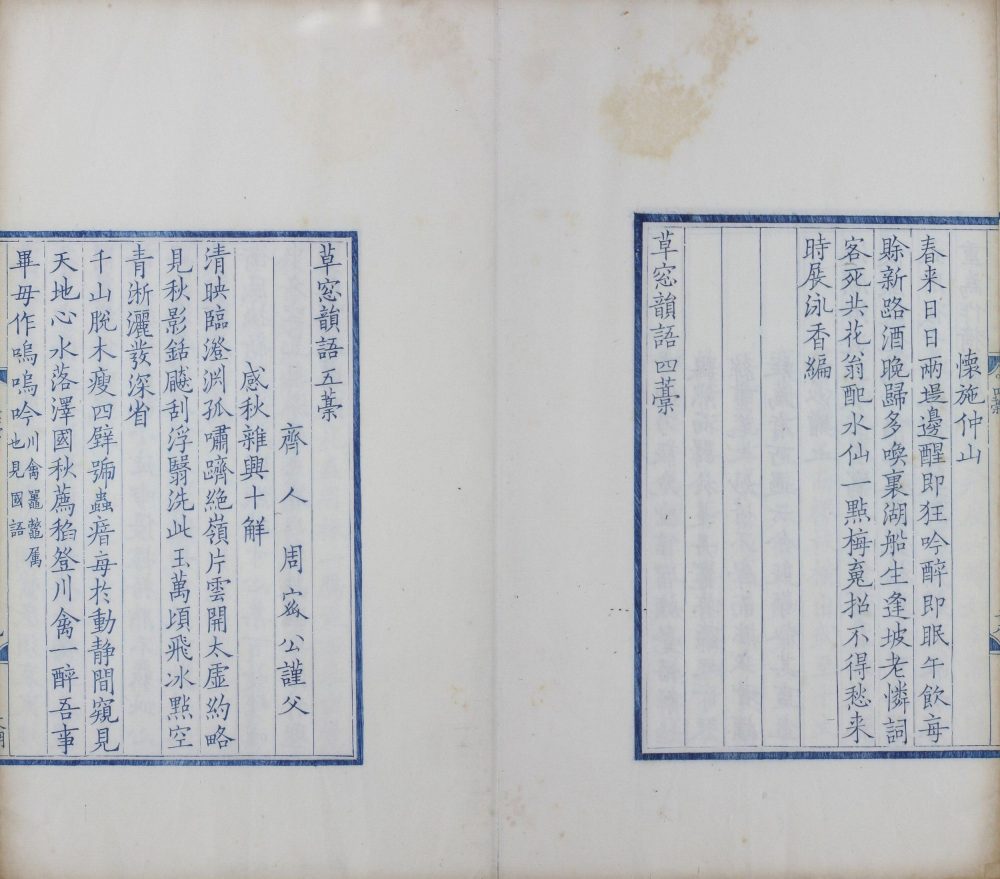 懷施仲山
春来日日兩堤邊醒即狂吟醉即眠午飲每
賒新路酒晚歸多喚裏湖船生逢坡老憐詞
客死共花翁配水仙一點梅䰟招不得愁来
時展泳香編
草窓韻語四藁
草窓韻語五藁
齊人周宻公謹父
感秋雜興十解
清映臨澄淵孤嘯躋絶嶺片雲開太虛約略
見秋影銛飈刮浮翳洗此玉萬頃飛冰點空
青淅灑發深省
千山脫木瘦四壁號蟲瘖每於動靜間窺見
天地心水落澤國秋薦稻登川禽一醉吾事
畢毋作嗚嗚吟川禽鼉鼈属
也見國語